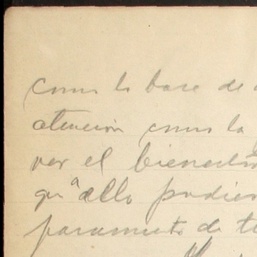 como la base de
atención como la
ver el bienestar
que a ello pudier
paramento de t